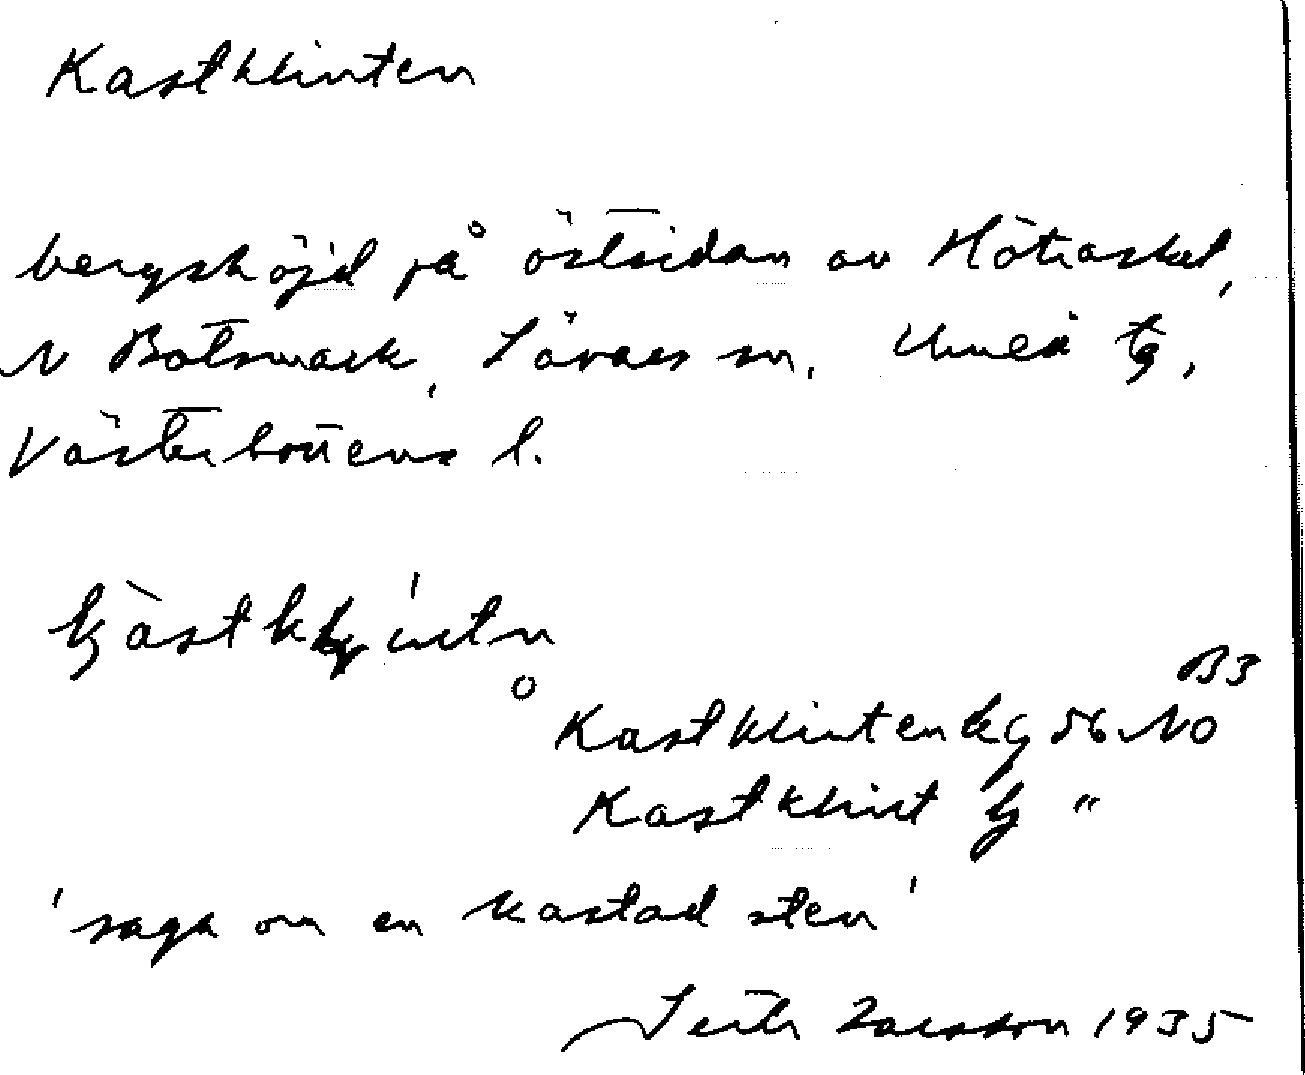 Kastklinten
bergshöjd på östsidan av Hötrasket,
N Botsmark, Sävars sn, Umeå tg,
Västerbottens l.
B3
Kastklinten kg 56 NO
Kastklint "
'saga om en kastad sten'
Larsson 1935